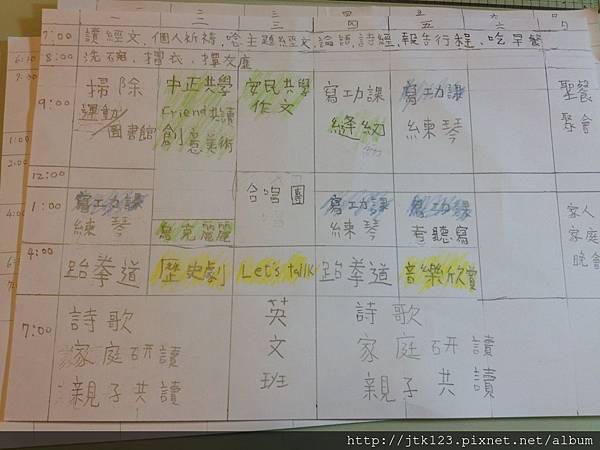 一 二 三 四 五 六 日
7:00 讀經文,個人祈禱,唸主題經文,論語,詩經,報告行程,吃早餐
8:00 洗碗,摺衣,撢灰塵
9:00
掃除
運動/圖書館
中正共學
Friend共讀
創意美術
安民共學
作文
寫功課
縫紉
寫功課
練琴
聖餐
聚會
12:00
1:00
寫功課
練琴
烏克麗麗
合唱團
寫功課
練琴
寫功課
考聽寫
家人
家庭
晚會
4:00
跆拳道
歷史劇
Let's tallk
跆拳道
音樂欣賞
7:00
詩歌
家庭研讀
親子共讀
英
文
班
詩歌
家庭研讀
親子共讀
http://jtk123.pixnet.net/album